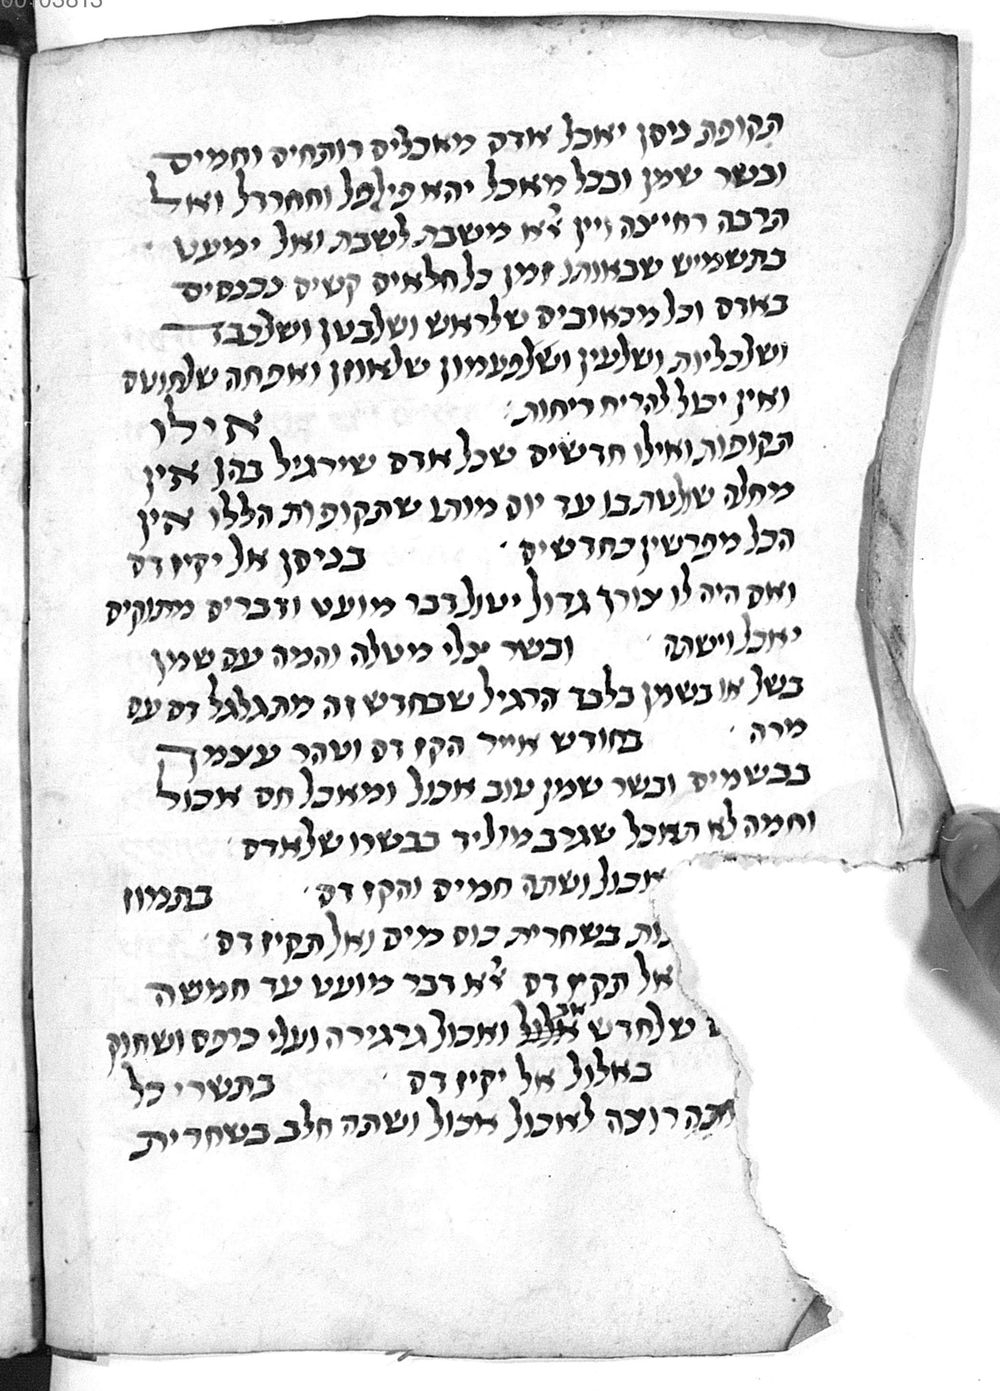 תקופת ניסן יאכל אדם מאכלים רותחים וחמים
ובשר שמן ובכל מאכל יהא פילפל וחררדל ואל
הרבה רחיצה ויין אא משבת לשבת ואל ימעט
בתשמיש שבאותו זמן כל חלאים קשים נכנסים
באדם וכל מכאובים שלראש ושלבטן ושלכבד
ושלכליות ושלעין ושלפעמון שלאוזן ואפחה שלחוטם
ואין יכול להריח ריחות
אילו
תקופות ואילו חדשים שכל אדם שירגיל בהן אין
מחלה שולטת בו עד יום מותו שתקופות הללו אין
הכל מפרשין כחדשים בניסן אל יקיז דם
ואם היה לו צורך גדול יטול דבר מועט ודברים מתוקים
יאכל וישתה ובשר צלי מטלה והמה עם שמן
בשל או בשמן בלבד הרגיל שבחדש זה מתגלגל דם עם
מרה בחודש אייר הקז דם וטהר עצמה
בבשמים ובשר שמן טוב אכול ומאכל חם אכול
וחמה לא תאכל שגרב מוליד בבשרו שלאדם
אכול ושתה חמים והקז דם בתמוז
בשחרית כוס מים ואל תקיז דם
אל תקיז דם אא דבר מועט עד חמשה
שלחדש אלול אב ואכול גרגירה ועלי כרפס ושחוק
באלול אל יקיז דם בתשרי כל
רוצה לאכול אכול ושתה חלב בשחרית